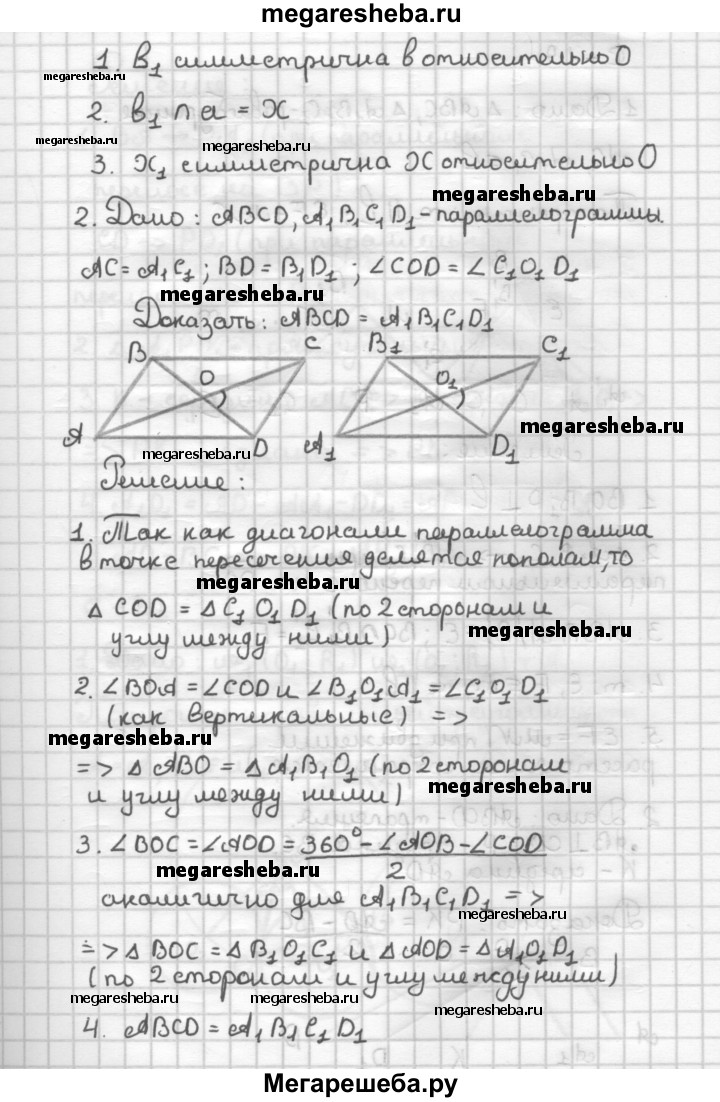 megaresheba.ru
1. B₁ симметрична B относительно O
megaresheba.ru
2. B₁ ∩ a = X
megaresheba.ru
megaresheba.ru
3. X₁ симметрична X относительно O
megaresheba.ru
2. Дано: ABCD, A₁B₁C₁D₁ - параллелограммы.
AC = A₁C₁; BD = B₁D₁; ∠COD = ∠C₁O₁D₁
megaresheba.ru
Доказать: ABCD = A₁B₁C₁D₁
B C B₁ C₁
O O₁
A D A₁ D₁
megaresheba.ru
megaresheba.ru
Решение:
1. Так как диагонали параллелограмма
в точке пересечения делятся пополам, то
megaresheba.ru
Δ COD = Δ C₁O₁D₁ (по 2 сторонам и
углу между ними)
megaresheba.ru
2. ∠BOA = ∠COD и ∠B₁O₁A₁ = ∠C₁O₁D₁
(как вертикальные) =>
megaresheba.ru
=> Δ ABO = Δ A₁B₁O₁ (по 2 сторонам
и углу между ними)
megaresheba.ru
3. ∠BOC = ∠AOD = 360° - ∠AOB - ∠COD
2
megaresheba.ru
аналигично для A₁B₁C₁D₁ =>
megaresheba.ru
=> Δ BOC = Δ B₁O₁C₁ и Δ AOD = Δ A₁O₁D₁
(по 2 сторонам и углу между ними)
megaresheba.ru megaresheba.ru megaresheba.ru
4. ABCD = A₁B₁C₁D₁
Мегарешеба.ру